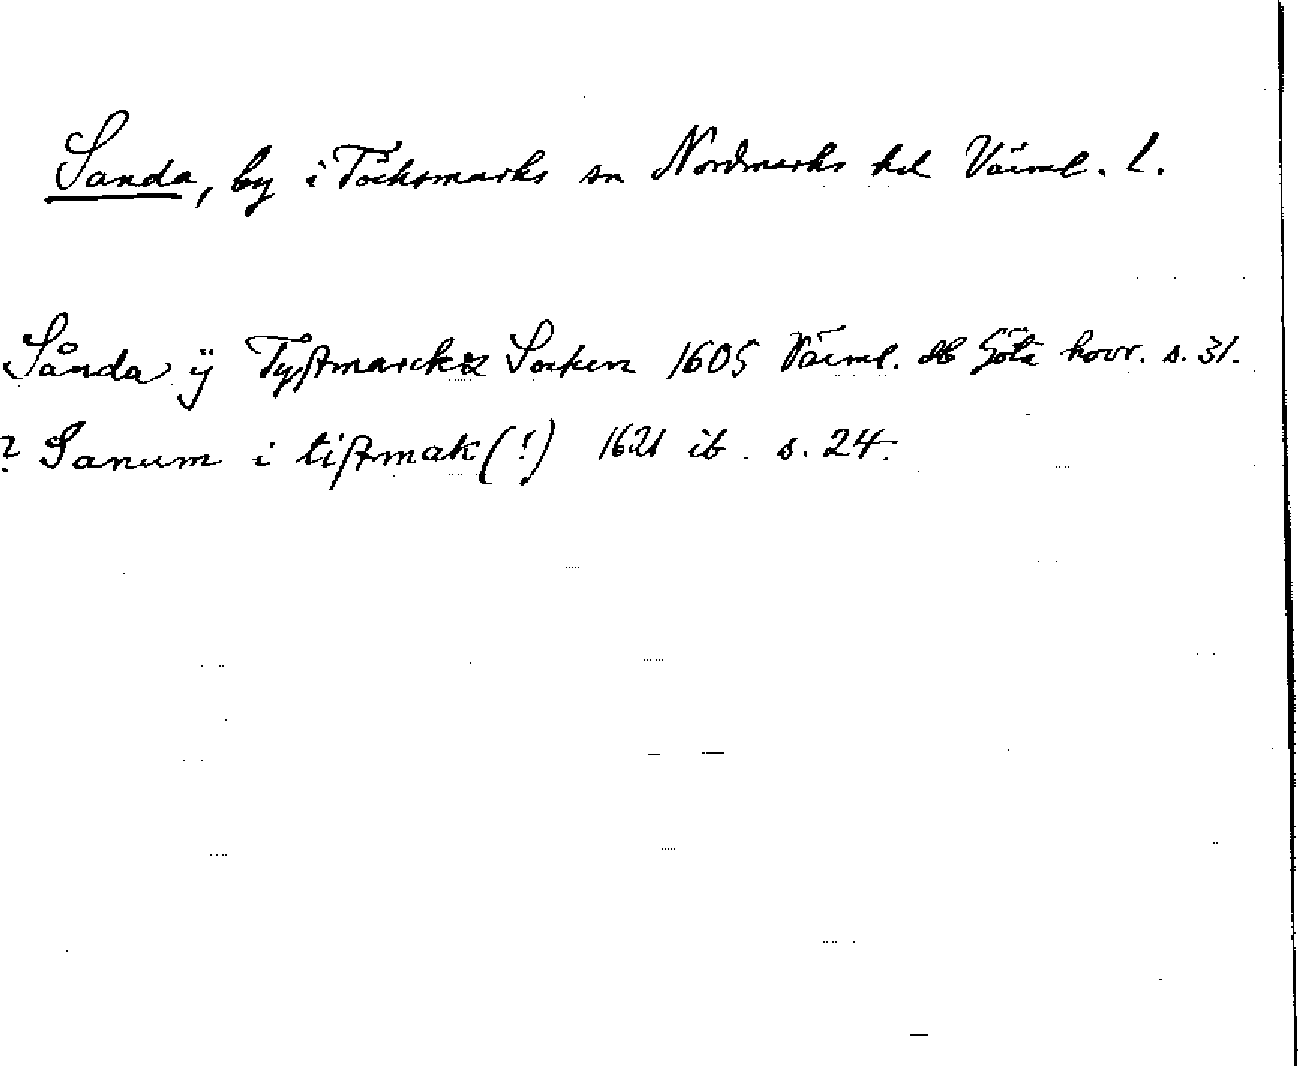 Sanda, by i Töcksmarks sn Nordmarks hd Värml. l.
Sånda ÿ Tyftmarckz Socken 1605 Värml. db Göta hovr. s. 31.
? Sanum i tiftmak (!) 1621 ib. s. 24.